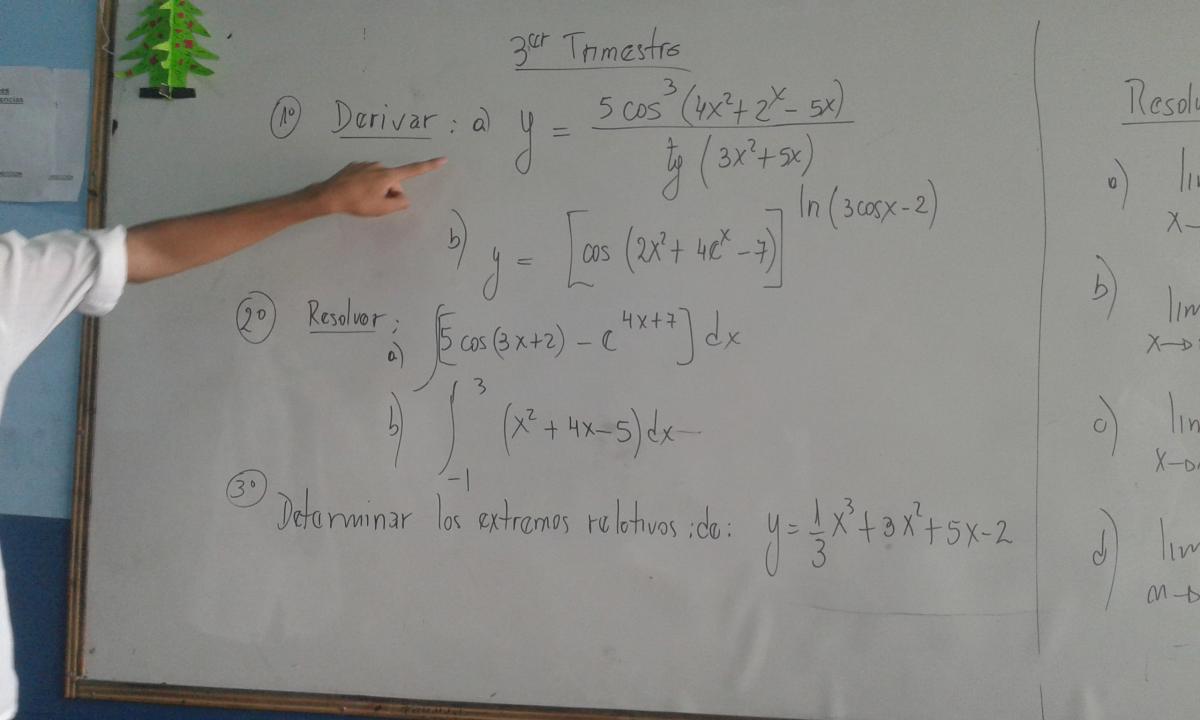 3er Trimestre
1º Derivar: a) y = 5 cos³ (4x² + 2ˣ - 5x) / tg (3x² + 5x)
b) y = [cos (2x² + 4eˣ - 7)]^ln (3cosx - 2)
2º Resolver:
a) ∫[5 cos(3x+2) - e^4x+7] dx
b) ∫_-1^3 (x² + 4x - 5) dx
3º Determinar los extremos relativos :de: y = 1/3 x³ + 3x² + 5x - 2
a)
x→
b) lim
x→
c)
x→
d) lim